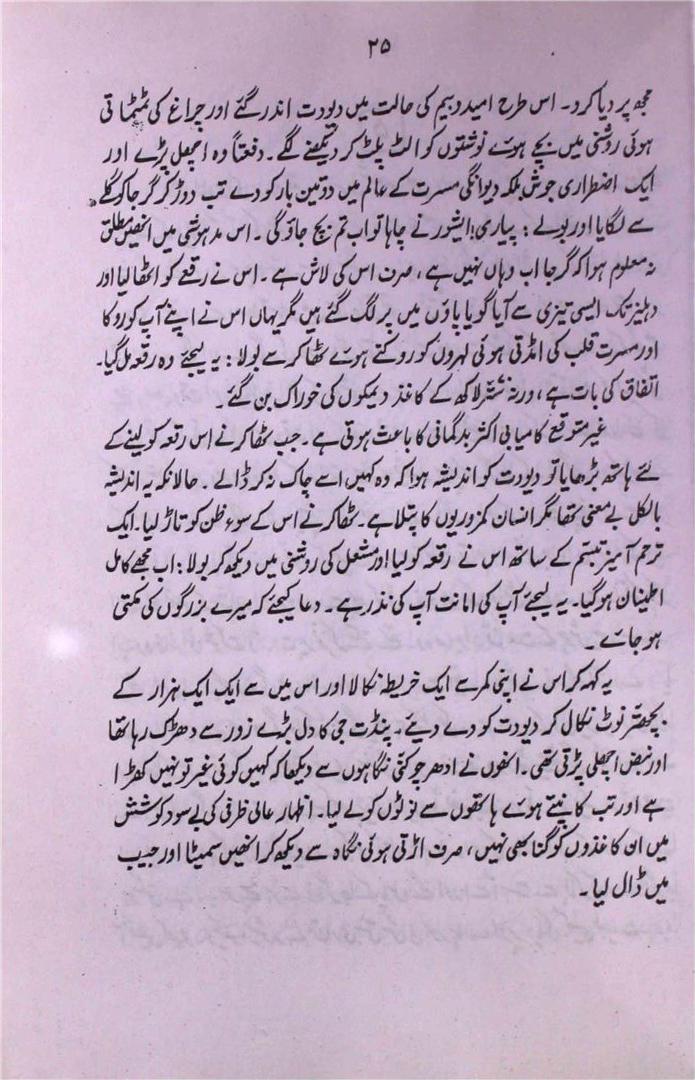 ۲۵
مجھ پر دیا کرد۔ اس طرح امید دبیم کی حالت میں دیودت اندر گئے اور چراغ کی ٹمٹماتی
ہوئی روشنی میں بچے ہوئے نوشتوں کو الٹ پلٹ کر دیکھنے لگے۔ دفعتاً وہ اچھل پڑے اور
ایک اضطراری جوش بلکہ دیوانگی مسرت کے عالم میں دوتین بار کودے تب دوڑ کر گرجا کو گلے
سے لگایا اور بولے : پیاری! ایشور نے چاہا تو اب تم بچ جاؤگی ۔ اس مدہوشی میں انھیں مطلق
نہ معلوم ہوا کہ گرجا اب وہاں نہیں ہے ، صرف اس کی لاش ہے ۔ اس نے رقعے کو اٹھا لیا اور
دہلیز تک ایسی تیزی سے آیا گویا پاؤں میں پر لگ گئے ہیں مگر یہاں اس نے اپنے آپ کو روکا
اور مسرت قلب کی امڈتی ہوئی لہروں کو روکتے ہوئے ٹھاکر سے بولا : یہ لیجئے وہ رقعہ مل گیا۔
اتفاق کی بات ہے ، ورنہ ستّر لاکھ کے کاغذ دیمکوں کی خوراک بن گئے ۔
غیر متوقع کامیابی اکثر بدگمانی کا باعث ہوتی ہے ۔ جب ٹھاکر نے اس رقعہ کو لینے کے
لئے ہاتھ بڑھایا تو دیودت کو اندیشہ ہوا کہ وہ کہیں اسے چاک نہ کر ڈالے ۔ حالانکہ یہ اندیشہ
بالکل بے معنی تھا مگر انسان کمزوریوں کا پتلا ہے ۔ ٹھاکر نے اس کے سوء ظن کو تاڑ لیا۔ ایک
ترحم آمیز تبسم کے ساتھ اس نے رقعہ کو لیا اور مشعل کی روشنی میں دیکھ کر بولا : اب مجھے کامل
اطینان ہوگیا۔ یہ لیجئے آپ کی امانت آپ کی نذر ہے ۔ دعا کیجئے کہ میرے بزرگوں کی مکتی
ہو جائے ۔
یہ کہہ کر اس نے اپنی کمر سے ایک خریطہ نکالا اور اس میں سے ایک ایک ہزار کے
پچھتّر نوٹ نکال کر دیودت کو دے دیئے۔ پنڈت جی کا دل بڑے زور سے دھڑک رہا تھا
اور نبض اچھلی پڑتی تھی ۔ انھوں نے ادھر چوکنی نگاہوں سے دیکھا کہ کہیں کوئی غیر تو نہیں کھڑا
ہے اور تب کانپتے ہوئے ہاتھوں سے نوٹوں کو لے لیا۔ اظہار عالی ظرفی کی بے سود کوشش
میں ان کاغذوں کو گنا بھی نہیں ، صرف اڑتی ہوئی نگاہ سے دیکھ کر انھیں سمیٹا اور جیب
میں ڈال لیا۔